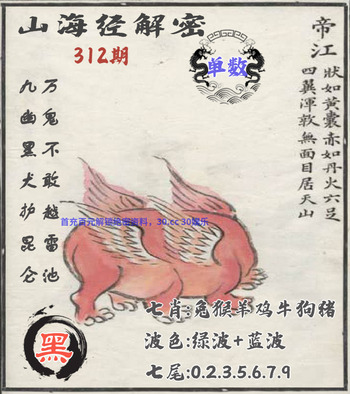 山海经解密
312期
单数
帝江
狀如黃囊赤如丹火六足
四翼渾敦無面目居天山
万鬼不敢越雷池
九幽黑犬护昆仑
首充百元解锁绝密资料，30.cc 30娱乐
七肖:兔猴羊鸡牛狗猪
波色:绿波+蓝波
七尾:0.2.3.5.6.7.9
黑